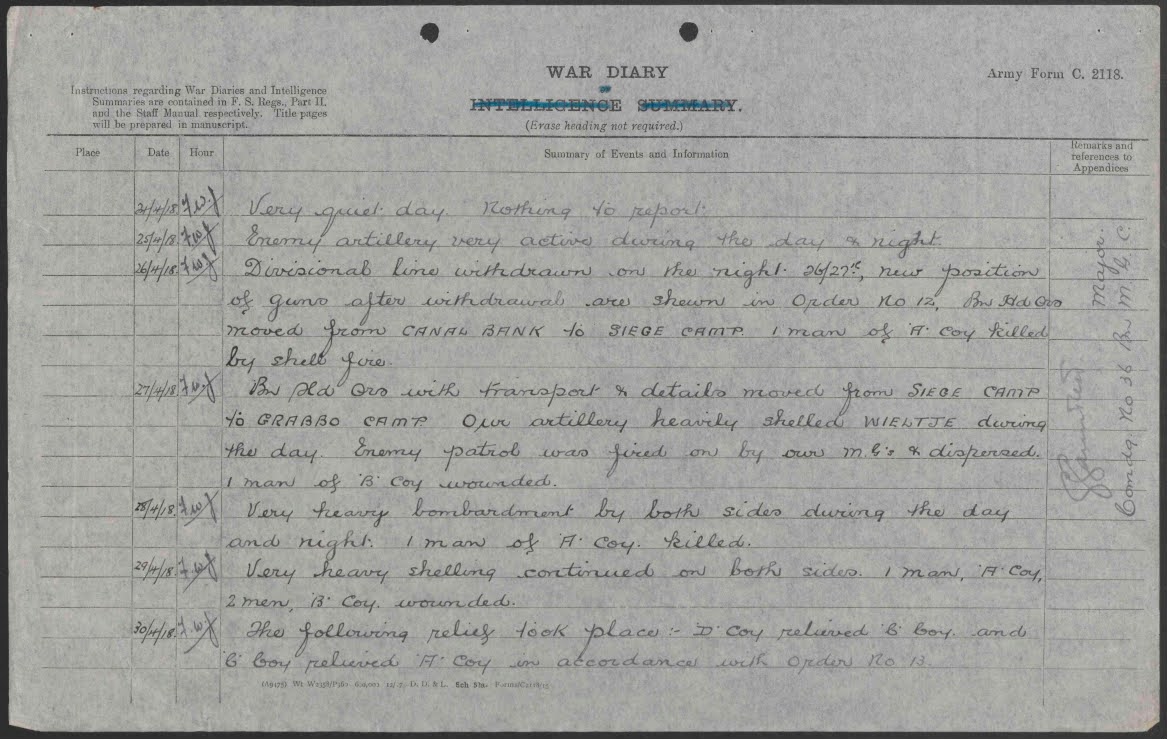 WAR DIARY
or
INTELLIGENCE SUMMARY.
(Erase heading not required.)
Army Form C. 2118.
Instructions regarding War Diaries and Intelligence
Summaries are contained in F. S. Regs., Part II.
and the Staff Manual respectively. Title pages
will be prepared in manuscript.
Place Date Hour Summary of Events and Information Remarks and
references to
Appendices
24/4/18 Very quiet day. Nothing to report.
25/4/18. Enemy artillery very active during the day & night.
26/4/18. Divisional line withdrawn on the night 26/27th, new position
of guns after withdrawal are shewn in Order No 12, Bn Hd Qrs
moved from CANAL BANK to SIEGE CAMP. 1 man of 'A' Coy killed
by shell fire.
27/4/18. Bn Hd Qrs with transport & details moved from SIEGE CAMP
to GRABBO CAMP Our artillery heavily shelled WIELTJE during
the day. Enemy patrol was fired on by our M.G's & dispersed.
1 man of 'B' Coy wounded.
28/4/18. Very heavy bombardment by both sides during the day
and night. 1 man of 'A' Coy. killed.
29/4/18. Very heavy shelling continued on both sides. 1 man, 'A' Coy,
2 men, 'B' Coy. wounded.
30/4/18. The following reliefs took place :- 'D' Coy relieved 'B' Coy. and
'C' Coy relieved 'A' Coy in accordance with Order No 13.
Major.
Comdg No 36 Bn M. G. C.
D. D. & L. Sch